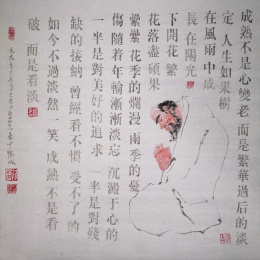 成熟不是心變老 而是繁華過后的淡
定 人生如果樹
在風雨中成
長 在陽光
下開花 繁
花落盡 碩果
纍纍 花季的爛漫 雨季的憂
傷 隨着年輪漸漸淡忘 沉澱于心的
一半是對美好的追求 一半是對殘
缺的接納 曾經看不慣 受不了的
如今不過淡然一笑 成熟不是看
破 而是看淡